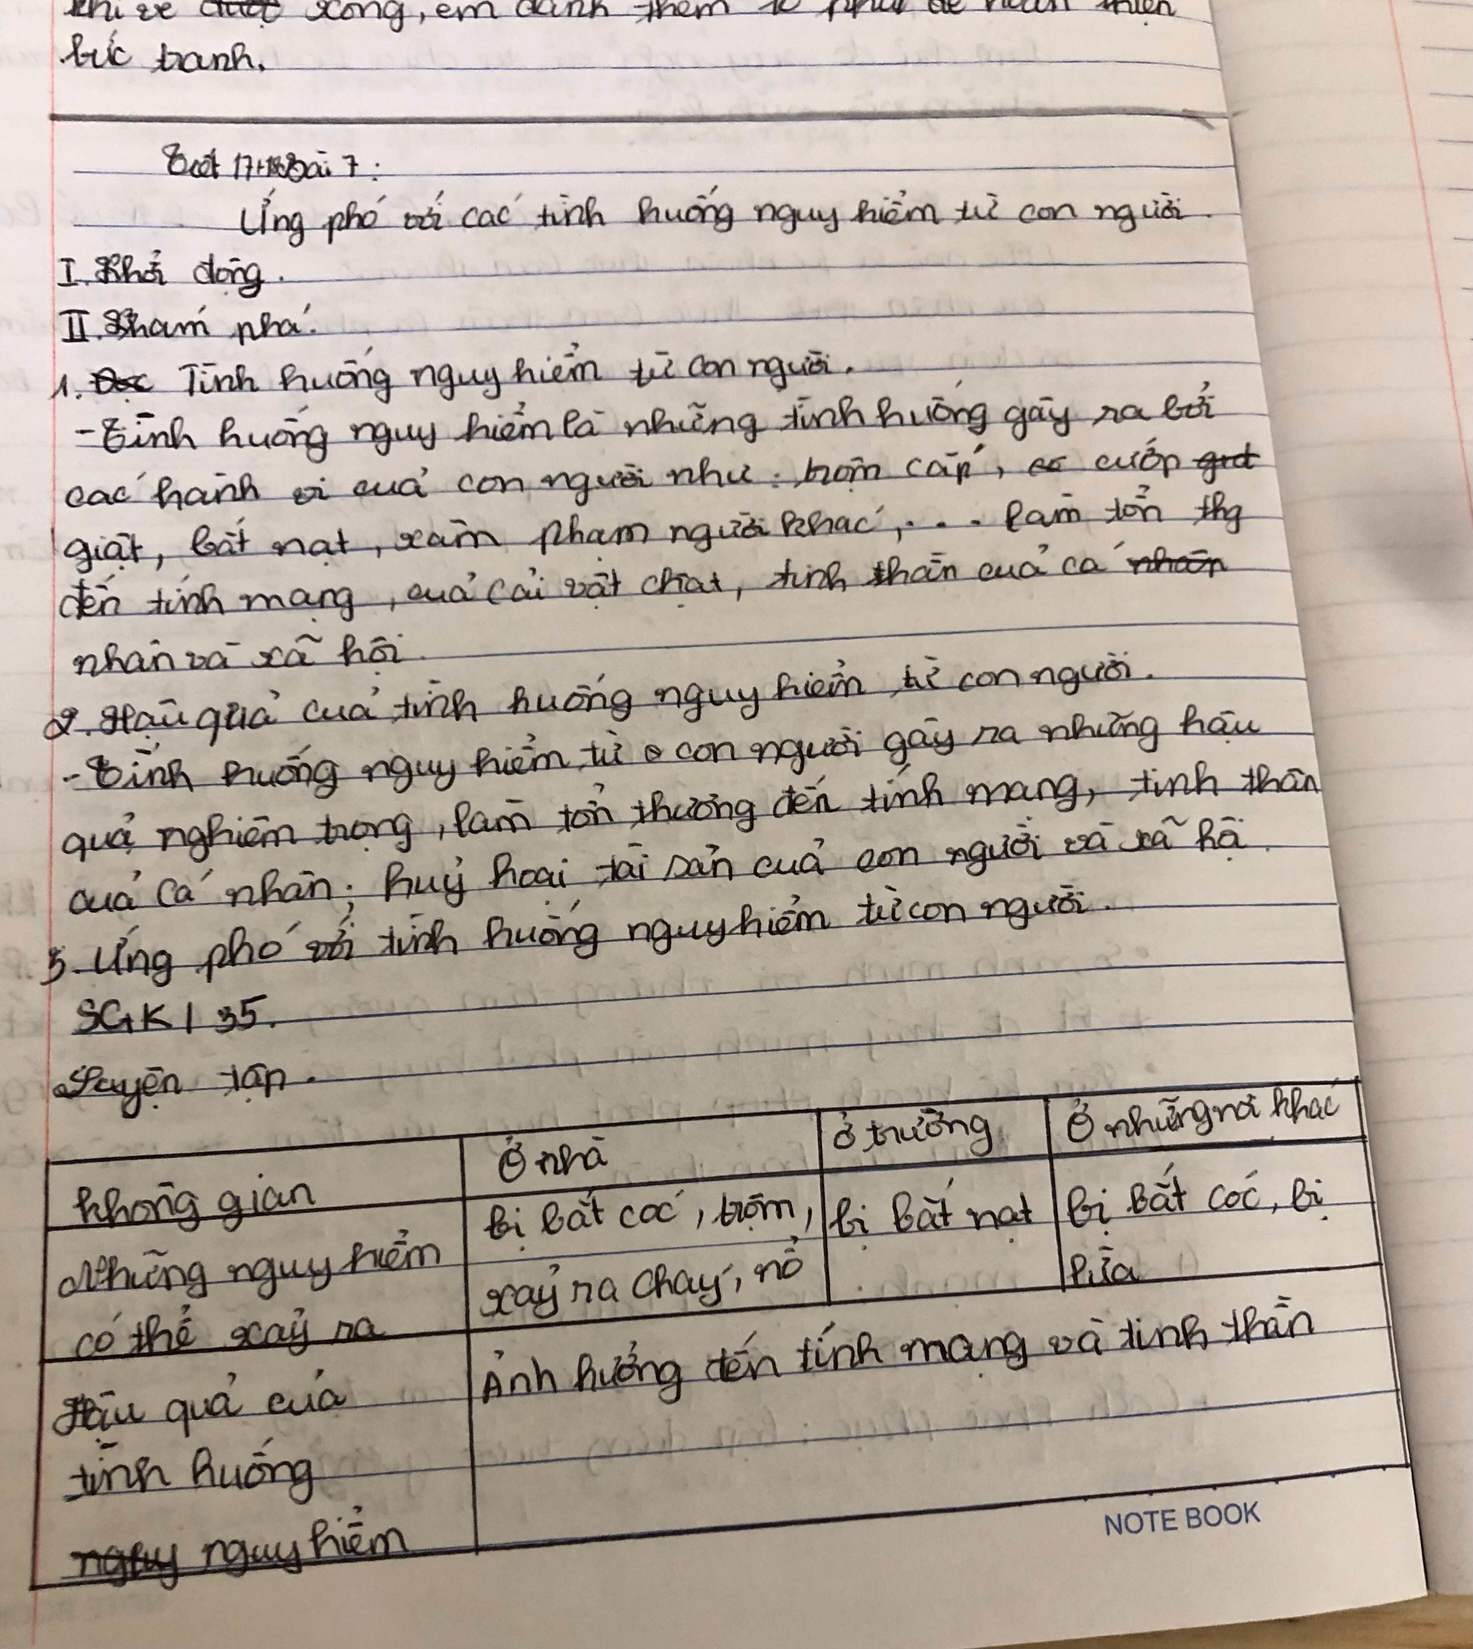 khi vẽ xong, em dành thêm
bức tranh.
Tiết 17+18 Bài 7:
Ứng phó với các tình huống nguy hiểm từ con người.
I. Khởi động.
II. Khám phá.
1. Đọc Tình huống nguy hiểm từ con người.
- Tình huống nguy hiểm là những tình huống gây ra bởi
các hành vi của con người như: trộm cắp, cướp
giật, bắt nạt, xâm phạm người khác,... làm tổn thg
đến tính mạng, của cải vật chất, tinh thần của cá nhân
nhân và xã hội.
2. Hậu quả của tình huống nguy hiểm từ con người.
- Tình huống nguy hiểm từ con người gây ra những hậu
quả nghiêm trọng, làm tổn thương đến tính mạng, tinh thần
của cá nhân; huỷ hoại tài sản của con người và xã hộ
3. Ứng phó với tình huống nguy hiểm từ con người.
SGK/35.
Luyện tập.
Không gian | Ở nhà | Ở trường | Ở những nơi khác
Những nguy hiểm | Bị bắt cóc, trộm, | Bị bắt nạt | Bị bắt cóc, bị
có thể xảy ra | xảy ra cháy, nổ | lừa
Hậu quả của | Ảnh hưởng đến tính mạng và tinh thần
tình huống
nguy nguy hiểm
NOTE BOOK